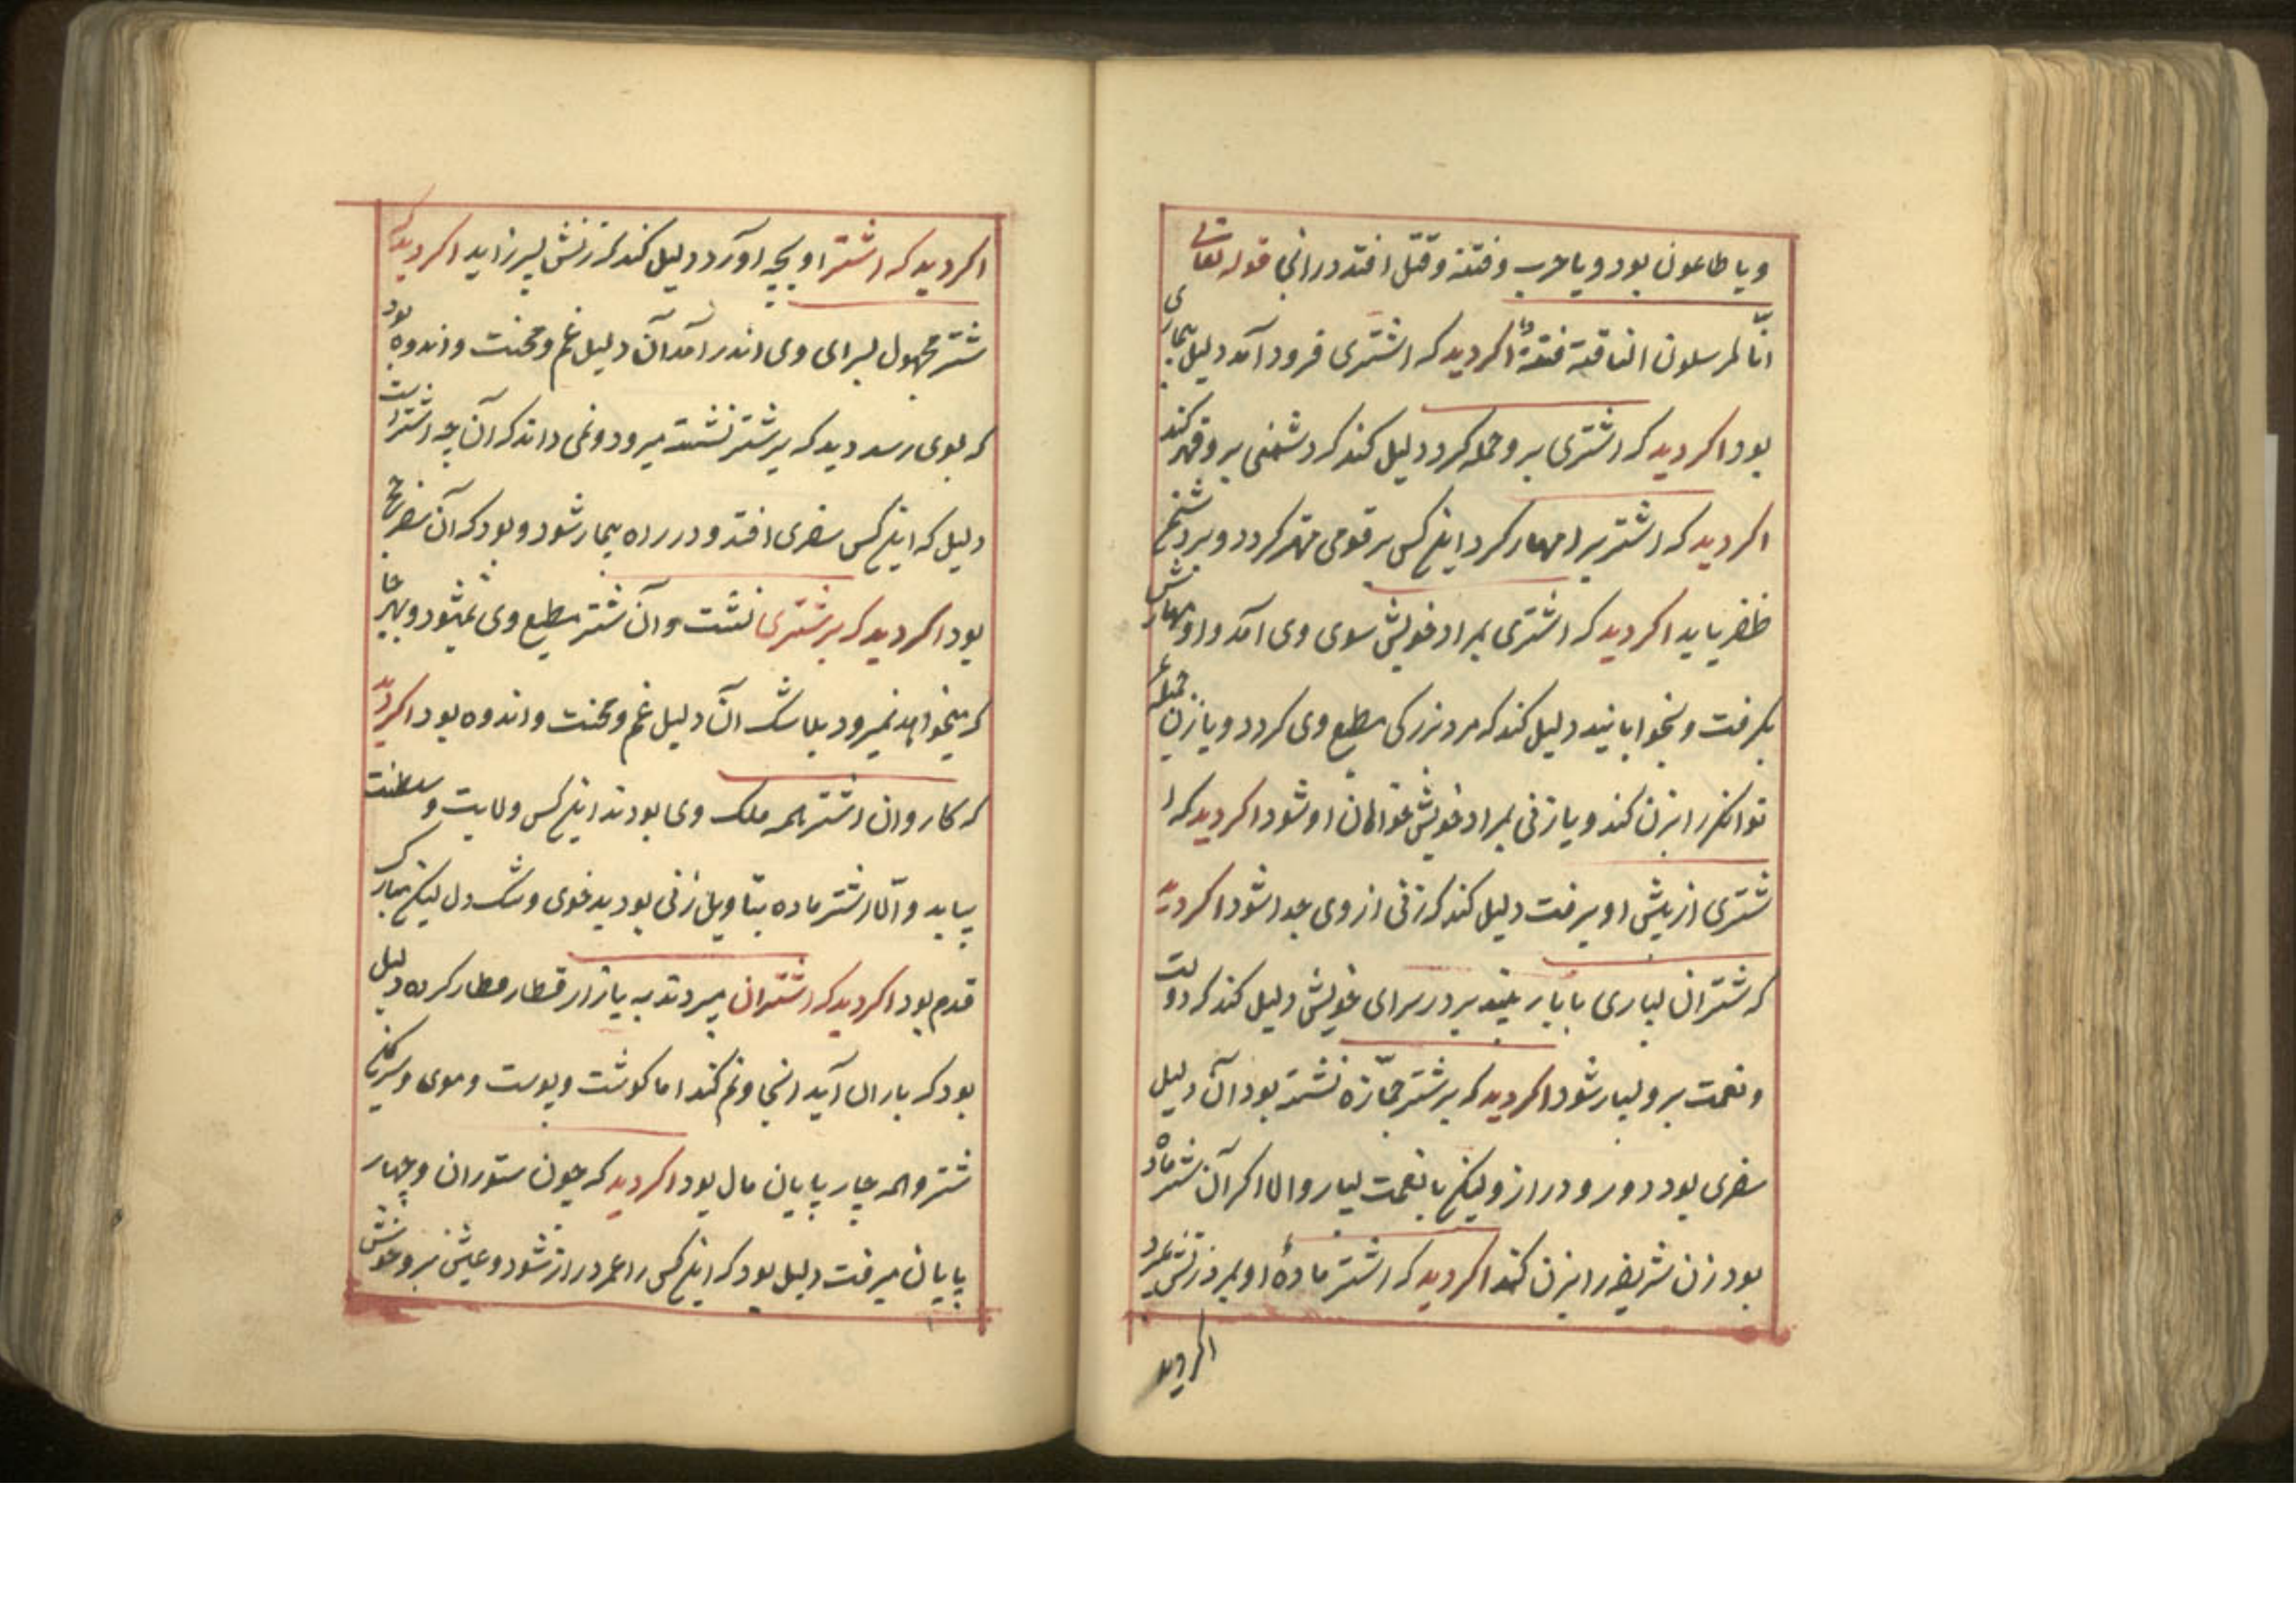 ویا طاعون بود ویا حرب وفتنه وقتل افتد درانجا قوله تعالی
انّا لمرسلون الناقة فتنةً اکر دید که اشتری فرود آمد دلیل بیماری
بود اکر دید که اشتری برو حمله کرد دلیل کند که دشمنی برو قهر کند
اکر دید که اشتر برا مهار کرد اینکس بر قومی مهتر کردد وبر دشمن
ظفر یابد اکر دید که اشتری بمراد خویش سوی وی آمد واو مهارش
بکرفت وبخوابانید دلیل کند که مرد بزرکی مطیع وی کردد ویا زن جمیله
توانکر را بزن کند ویا زنی بمراد خویش خواهان او شود اکر دید که ا
شتری از پیش او برفت دلیل کند که زنی از وی جدا شود اکر دید
که شتران بسیاری با بار بدر سرای خویش دلیل کند که دولت
ونعمت برو بسیار شود اکر دید که بر شتر جمّازه نشسته بود آن دلیل
سفری بود دور ودراز ولیکن با نعمت بسیار والا اکر آن شتر ماده
بود زن شریفه را بزن کند اکر دید که اشتر مادهٔ او بمرد زنش بمرد
اکر دید
اکر دید که اشتر او بچه آورد دلیل کند که زنش پسر زاید اکر دید که
شتر مجهول بسرای وی اندر آمد آن دلیل غم ومحنت واندوه بود
که بوی رسد دید که بر شتر نشسته میرود ونمی داند که آن چه اشتر است
دلیل که اینکس سفری افتد ودر راه بیمار شود وبود که آن سفر حج
بود اکر دید که بر شتری نشست وآن شتر مطیع وی نمیشود وبهر جا
که میخواهد نمیرود بلا شک آن دلیل غم ومحنت واندوه بود اکر دید
که کاروان اشتر همه ملک وی بودند اینکس ولایت وسلطنت
بیابد وامّا اشتر ماده بتاویل زنی بود بدخوی وسنک دل لیکن مبارک
قدم بود اکر دید که اشتران میبردند به بازار قطار قطار کرده دلیل
بود که باران آید انجا ونم کند اما کوشت وپوست وموی وسرکین
شتر وهمه چار پایان مال بود اکر دید که چون ستوران وچهار
پایان میرفت دلیل بود که اینکس را عمر دراز شود وعیش برو خوش